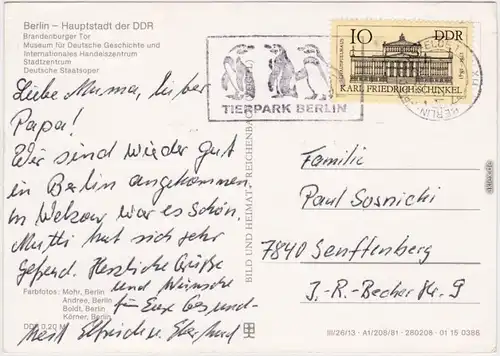 Berlin – Hauptstadt der DDR
Brandenburger Tor
Museum für Deutsche Geschichte und
Internationales Handelszentrum
Stadtzentrum
Deutsche Staatsoper
Liebe Mama, lieber
Papa!
Wir sind wieder gut
in Berlin angekommen.
In Welzow war es schön.
Mutti hat sich sehr
gefreut. Herzliche Grüße
und Wünsche
für Eure Gesund-
heit Elfriede u. Eberhard
Farbfotos: Mohr, Berlin
Andree, Berlin
Boldt, Berlin
Körner, Berlin
DDR 0,20 M
BILD UND HEIMAT REICHENBACH
TIERPARK BERLIN
10 DDR
SCHAUSPIELHAUS
KARL FRIEDRICH SCHINKEL
BERLIN
Familie
Paul Sosnicki
7840 Senftenberg
J.-R.-Becher Str. 9
III/26/13 · A1/208/81 · 280208 · 01 15 0386